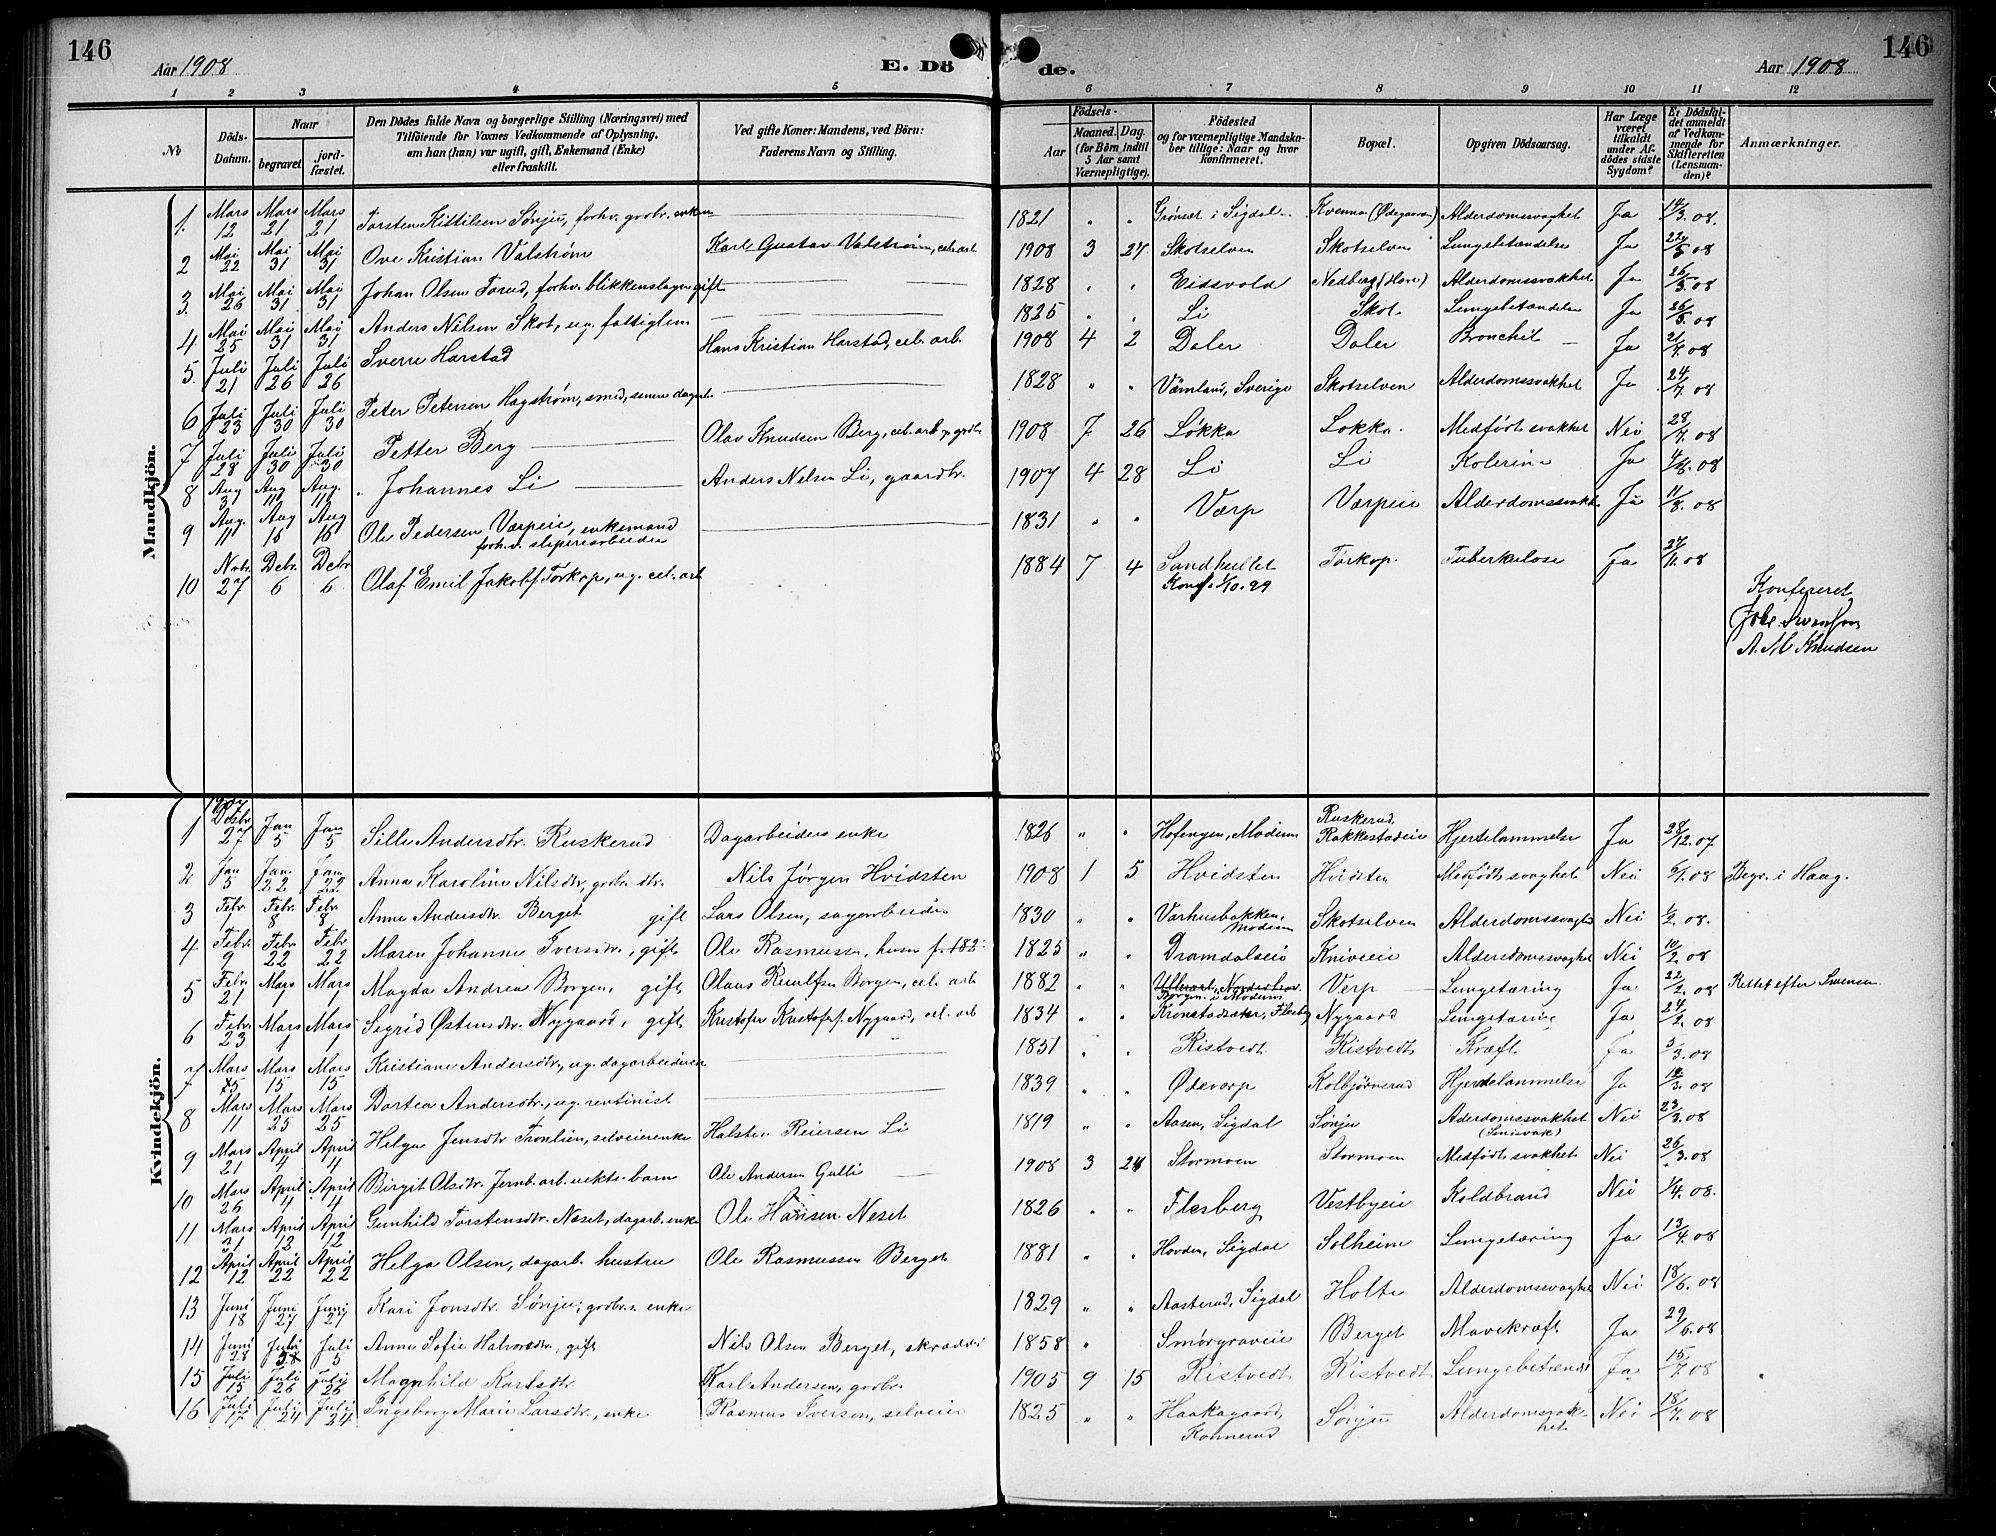 146
Aar 1908
E. Dö
de.
Aar 1908
146
1 2 3 4 5 6 7 8 9 10 11 12
№
Döds-
Datum.
Naar
begravet
jord-
fæstet.
Den Dödes fulde Navn og borgerlige Stilling (Næringsvei) med
Tilföiende for Voxnes Vedkommende af Oplysning,
om han (hun) var ugift, gift, Enkemand (Enke)
eller fraskilt.
Ved gifte Koner: Mandens, ved Börn:
Faderens Navn og Stilling.
Födsels-
Aar
Maaned. Dag.
(for Börn indtil
5 Aar samt
Værnepligtige).
Födested
og for værnepligtige Mandska-
ber tillige: Naar og hvor
konfirmeret.
Bopæl.
Opgiven Dödsaarsag.
Har Læge
været
tilkaldt
under Af-
dödes sidste
Sygdom?
Er Dödsfal-
det anmeldt
af Vedkom-
mende for
Skifteretten
(Lensman-
den)?
Anmærkninger.
Mandkjön.
1. Mars 12 Mars 21 Mars 21 Torsten Kittilsen Sønju, forhv. grdbr. enkem 1821 " " Grønsæt i Sigdal Kvenna (Ødegaarden) Alderdomssvaghet Ja 14/3.08.
2 Mai 22 Mai 31 Mai 31 Ove Kristian Valstrøm Karl Gustav Valstrøm, cel. arb 1908 3 24 Skotselven Skotselven Lungebetændelse Ja 22/5 08
3. Mai 26 Mai 31 Mai 31 Johan Olsen Torud, forhv. blikkenslager gift 1828 " " Eidsvold Nedberg (Hore) Alderdomssvakhet Ja 26/5.08
4 Mai 25 Mai 31 Mai 31 Anders Nilsen Skot, ug. fattiglem 1825 " " Li Skot. Lungebetændelse Ja 26/5.08
5. Juli 21 Juli 26 Juli 26 Sverre Harstad Hans Kristian Harstad, cel. arb. 1908 4 2 Doler Doler Bronchit Ja 21/7.08
6 Juli 23 Juli 30 Juli 30 Peter Petersen Hagstrøm, smid, senere dagarb. 1828 " " Värmland, Sverige Skotselven Alderdomssvakhet Ja 24/7.08
7 Juli 28 Juli 30 Juli 30 Petter Berg Olav Knudsen Berg, cel. arb. 1908 7 26 Løkka Løkka. Medfødt svakhet Nei 28/7.08
8 Aug 3 Aug 11 Aug. 11 Johannes Li Anders Nelsen Li, gaardbr. 1907 4 28 Li Li Kolerine Ja 4/8.08
9 Aug. 11 Aug 16 Aug 16 Ole Pedersen Værpeie, enkemand
forhv. sliperiarbeider 1831 " " Værp Værpeie Alderdomssvakh. Ja 11/8.08
10 Nobr. 27 Debr. 6 Debr 6 Olaf Emil Jakobs. Torkop, ug. cel. arb 1884 7 4 Sandhullet Torkop. Tuberkulose Ja 27/11.08
Konf. 1/10.99
Konfereret
A. M Knudsen
Kvindekjön.
1 1907 Debr 27 Jan 5 Jan 5 Sille Andersdtr. Ruskerud Dagarbeiders enke 1826 " " Hofengen, Modum Ruskerud, Rakkestadeie Hjertelammelse Ja 28/12.07
2 Jan 5 Jan. 22 Jan. 22 Anna Karoline Nilsdtr, grdbr. dtr. Nils Jørgen Hvidsten 1908 1 5 Hvidsten Hvidsten Medfødt svaghet Nei 6/1.08 Begr. i Haug.
3 Febr 1 Febr. 8 Febr. 8 Anne Andersdtr. Berget gift Lars Olsen, sagarbeider 1830 " " Varhusbakken, Modum Skotselven Alderdomssvaghet Nei 1/2.08.
4 Febr. 9 Febr 22 Febr 22 Maren Johanne Iversdtr., gift Ole Rasmussen, husm 1825 " " Dramdalseie Kniveeie Alderdomssvaghet Nei 10/2.08
5 Febr. 21 Mars 1 Mars 1 Magda Andrea Borgen, gift Olaus Ruulfsen Borgen, cel. arb 1882 " " Borgen i Modum Verp Lungetæring Ja 22/2.08 Rettet efter Svensen
6 Febr. 23 Mars 1 Mars 1 Sigrid Østensdtr. Nygaard, gift Kristofer Kristofers. Nygaard, cel. arb 1834 " " Kronstadsæter, Flesbg Nygaard Lungetæring Ja 24/2.08
7 Mars 5 Mars 15 Mars 15 Kristiane Andersdtr., ug. dagarbeiderske 1851 " " Ristvedt Ristvedt Kræft. Ja 5/3.08
8 Mars 11 Mars 25 Mars 25 Dortea Andersdtr., ug. rentinist 1839 " " Ødevorp Kolbjørnsrud Hjertelammelse Ja 12/3.08
9 Mars 21 April 4 April 4 Helga Jensdtr. Tronlien, selveierenke Halsten Reiersen Li 1819 " " Aasen, Sigdal Sønju Alderdomssvakhet Nei 23/3.08
10 Mars 26 April 4 April 4 Birgit Olsdtr. Jernb. arb. uekte barn Ole Andersen Gulli 1908 3 24 Stormoen Stormoen Medfødt svakhet Nei 26/3.08
11 Mars 31 April 12 April 12 Gunhild Torstensdtr. Neset, dagarb. enke Ole Hansen Neset 1826 " " Flesberg Vestbyeie Koldbrand Nei 1/4.08.
12 April 12 April 22 April 22 Helga Olsen, dagarb. hustru Ole Rasmussen Berget 1881 " " Hovden, Sigdal Solheim Lungetæring Ja 13/4.08
13 Juni 18 Juni 27 Juni 27 Kari Jonsdtr. Sønju, grdbr. enke 1829 " " Aasterud, Sigdal Holte Alderdomssvaghet Nei 18/6.08
14 Juni 28 Juli 5 Juli 5 Anne Sofie Halvorsdtr., gift Nils Olsen Berget, skrædder 1858 " Smørgraveie Berget Mavekræft Ja 29/6.08
15 Juli 15 Juli 26 Juli 26 Magnhild Karlsdtr. Karl Andersen, grdbr. 1905 9 15 Ristvedt Ristvedt Lungebetændelse Ja 15/7.08
16 Juli 17 Juli 24 Juli 24 Ingeborg Marie Larsdtr., enke Rasmus Iversen, selveier 1825 " " Haakagaard, Konnerud Sønju Alderdomssvakhet Nei 18/7.08